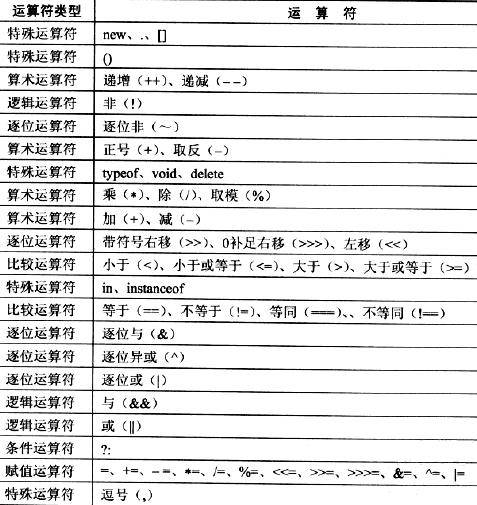 运算符类型 运 算 符
特殊运算符 new、.、[]
特殊运算符 ()
算术运算符 递增（++）、递减（--）
逻辑运算符 非（!）
逐位运算符 逐位非（～）
算术运算符 正号（+）、取反（-）
特殊运算符 typeof、void、delete
算术运算符 乘（*）、除（/）、取模（%）
算术运算符 加（+）、减（-）
逐位运算符 带符号右移（>>）、0补足右移（>>>）、左移（<<）
比较运算符 小于（<）、小于或等于（<=）、大于（>）、大于或等于（>=）
特殊运算符 in、instanceof
比较运算符 等于（==）、不等于（!=）、等同（===）、、不等同（!==）
逐位运算符 逐位与（&）
逐位运算符 逐位异或（^）
逐位运算符 逐位或（|）
逻辑运算符 与（&&）
逻辑运算符 或（||）
条件运算符 ?:
赋值运算符 =、+=、-=、*=、/=、%=、<<=、>>=、>>>=、&=、^=、|=
特殊运算符 逗号（,）